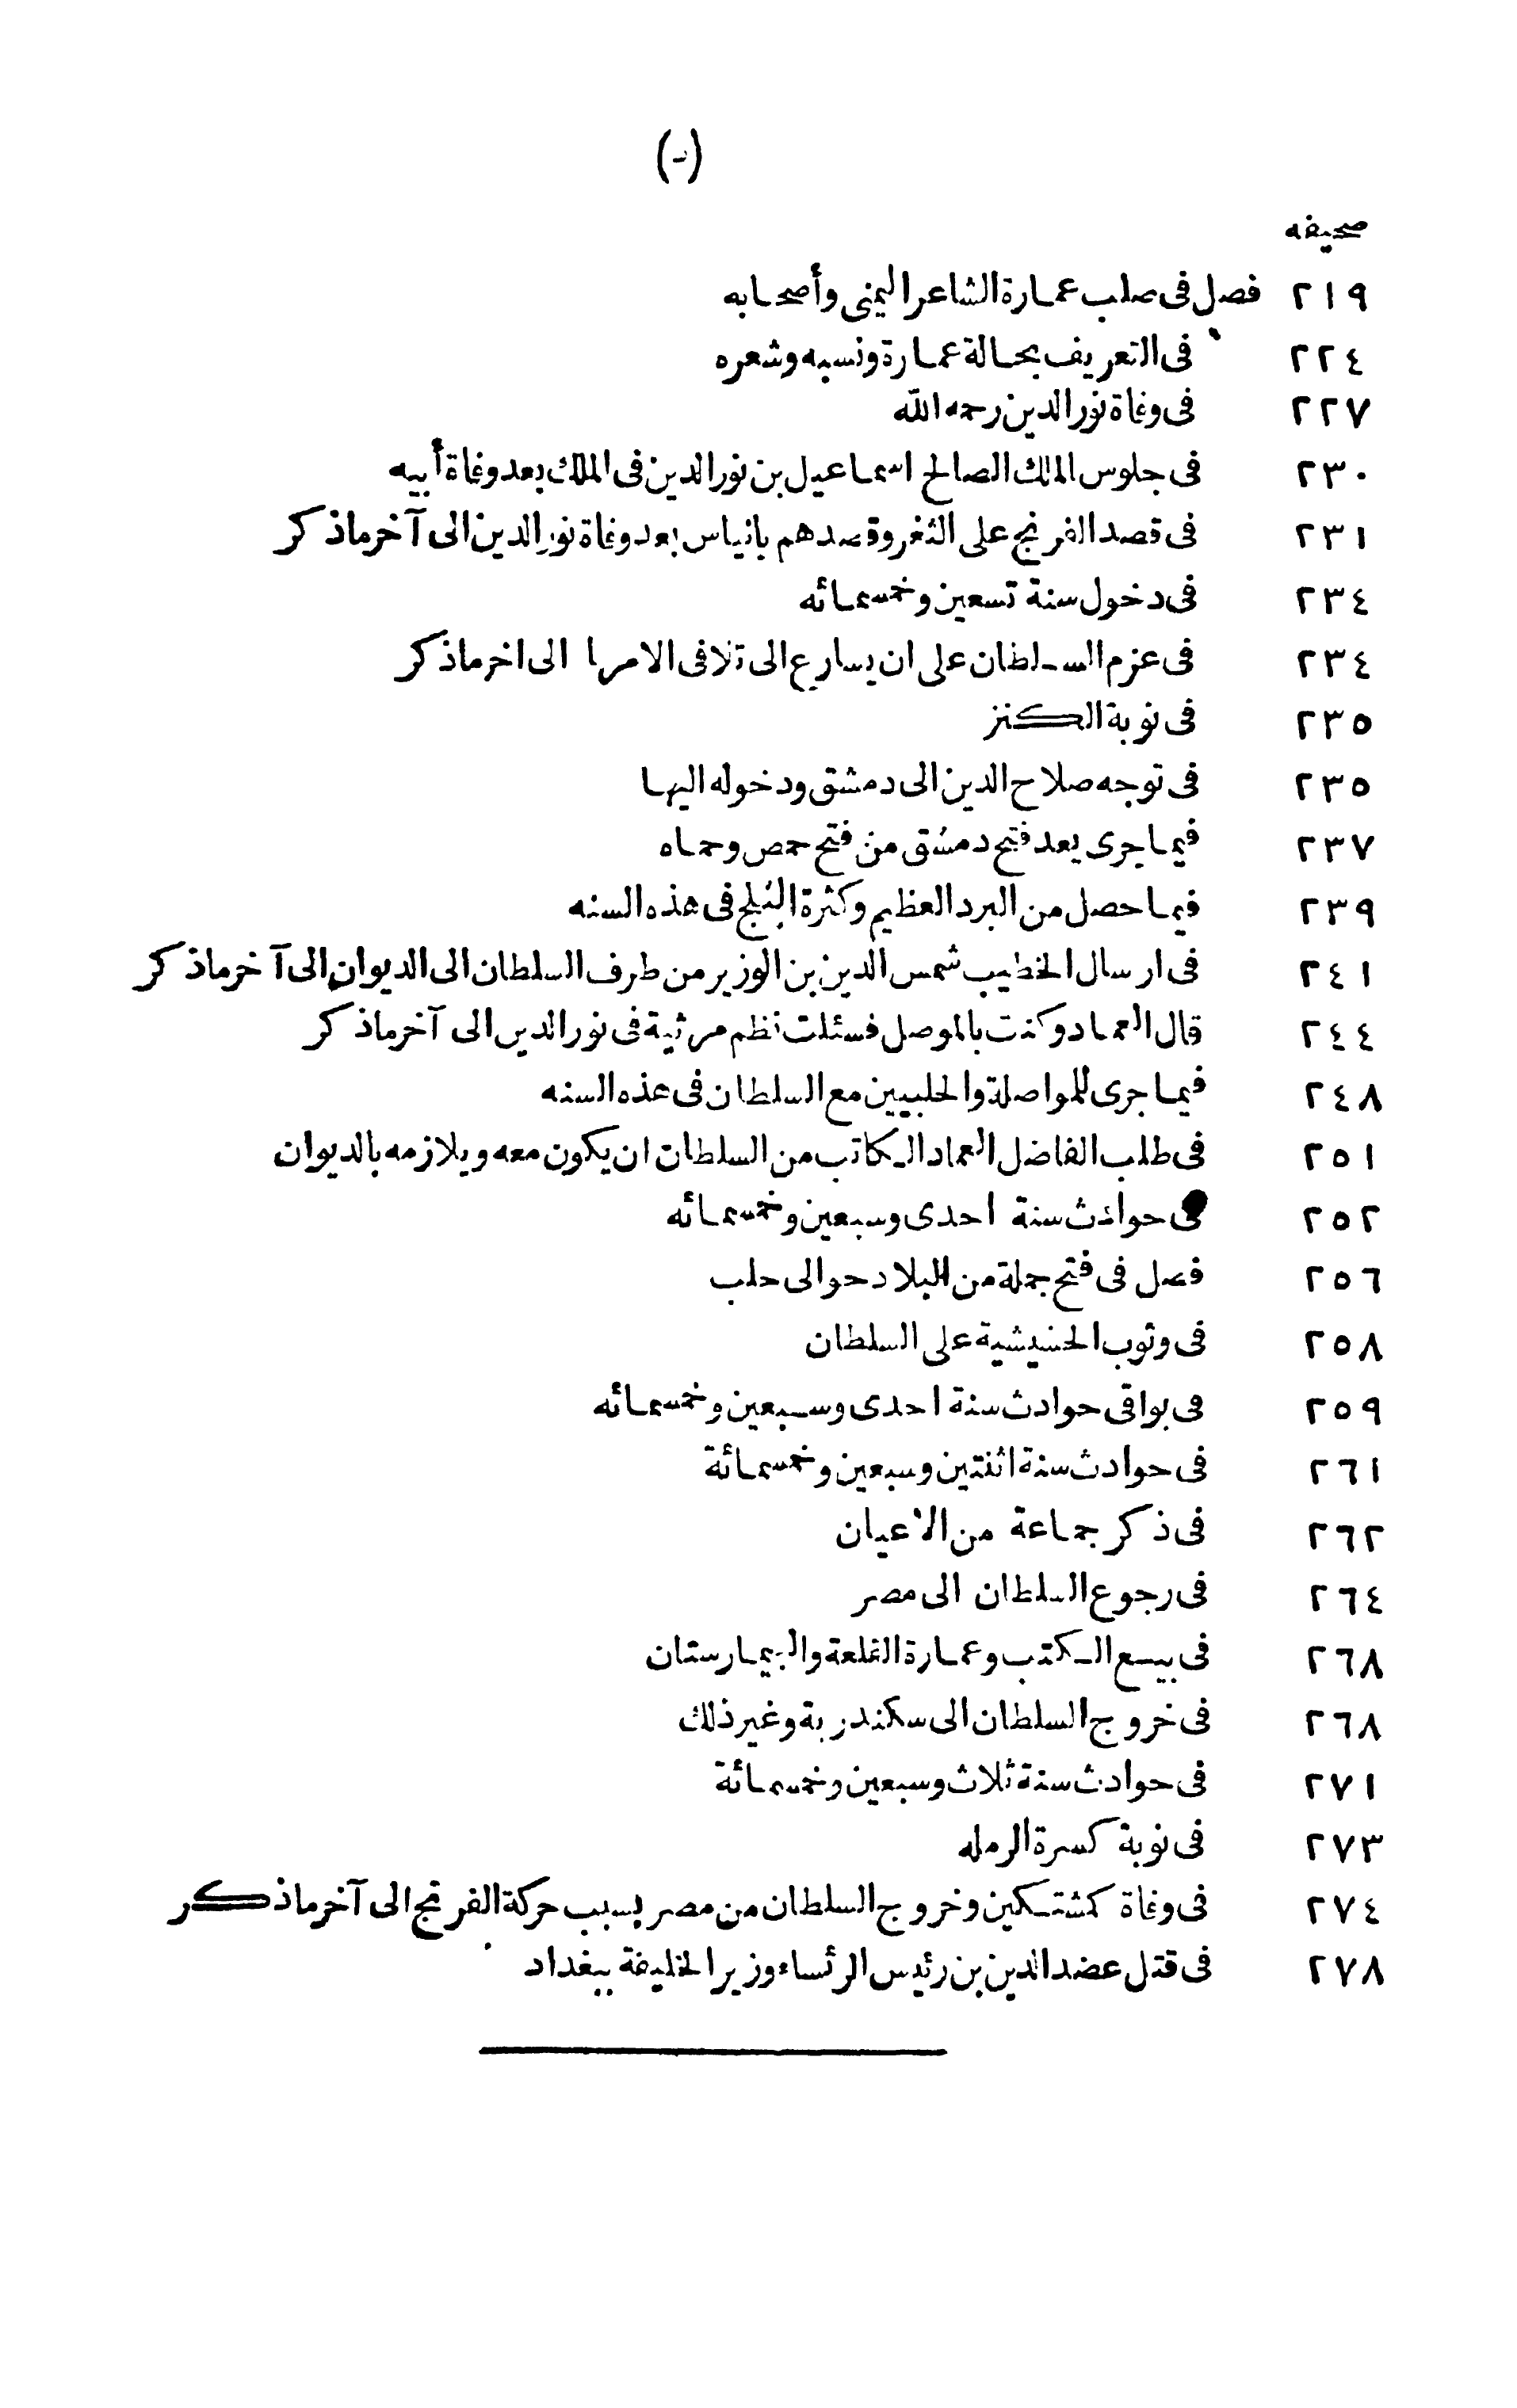 (-)
صحيفه
٢١٩ فصل فى صلب عمارة الشاعر اليمنى وأصحابه
٢٢٤ فى التعريف بحالة عمارة ونسبه وشعره
٢٢٧ فى وفاة نور الدين رحمه الله
٢٣٠ فى جلوس الملك الصالح اسماعيل بن نور الدين فى الملك بعد وفاة أبيه
٢٣١ فى قصد الفرنج على الثغر وقصدهم بانياس بعد وفاة نور الدين الى آخر ماذكر
٢٣٤ فى دخول سنة تسعين وخمسمائه
٢٣٤ فى عزم السلطان على ان يسارع الى تلافى الامر الى اخر ماذكر
٢٣٥ فى نوبة الكنز
٢٣٥ فى توجه صلاح الدين الى دمشق ودخوله اليها
٢٣٧ فيما جرى بعد فتح دمشق من فتح حمص وحماه
٢٣٩ فيما حصل من البرد العظيم وكثرة الثلج فى هذه السنه
٢٤١ فى ارسال الخطيب شمس الدين بن الوزير من طرف السلطان الى الديوان الى آخر ماذكر
٢٤٤ قال العماد وكنت بالموصل فسئلت نظم مرثية فى نور الدين الى آخر ماذكر
٢٤٨ فيما جرى للمواصلة والحلبيين مع السلطان فى هذه السنه
٢٥١ فى طلب الفاضل العماد الكاتب من السلطان ان يكون معه ويلازمه بالديوان
٢٥٢ فى حوادث سنة احدى وسبعين وخمسمائه
٢٥٦ فصل فى فتح جملة من البلاد حوالى حلب
٢٥٨ فى وثوب الحشيشية على السلطان
٢٥٩ فى بواقى حوادث سنة احدى وسبعين وخمسمائه
٢٦١ فى حوادث سنة اثنتين وسبعين وخمسمائة
٢٦٢ فى ذكر جماعة من الاعيان
٢٦٤ فى رجوع السلطان الى مصر
٢٦٨ فى بيع الكتب وعمارة القلعة والبيمارستان
٢٦٨ فى خروج السلطان الى سكندرية وغير ذلك
٢٧١ فى حوادث سنة ثلاث وسبعين وخمسمائة
٢٧٣ فى نوبة كسرة الرمله
٢٧٤ فى وفاة كمشتكين وخروج السلطان من مصر بسبب حركة الفرنج الى آخر ماذكر
٢٧٨ فى قتل عضد الدين بن رئيس الرئساء وزير الخليفة ببغداد